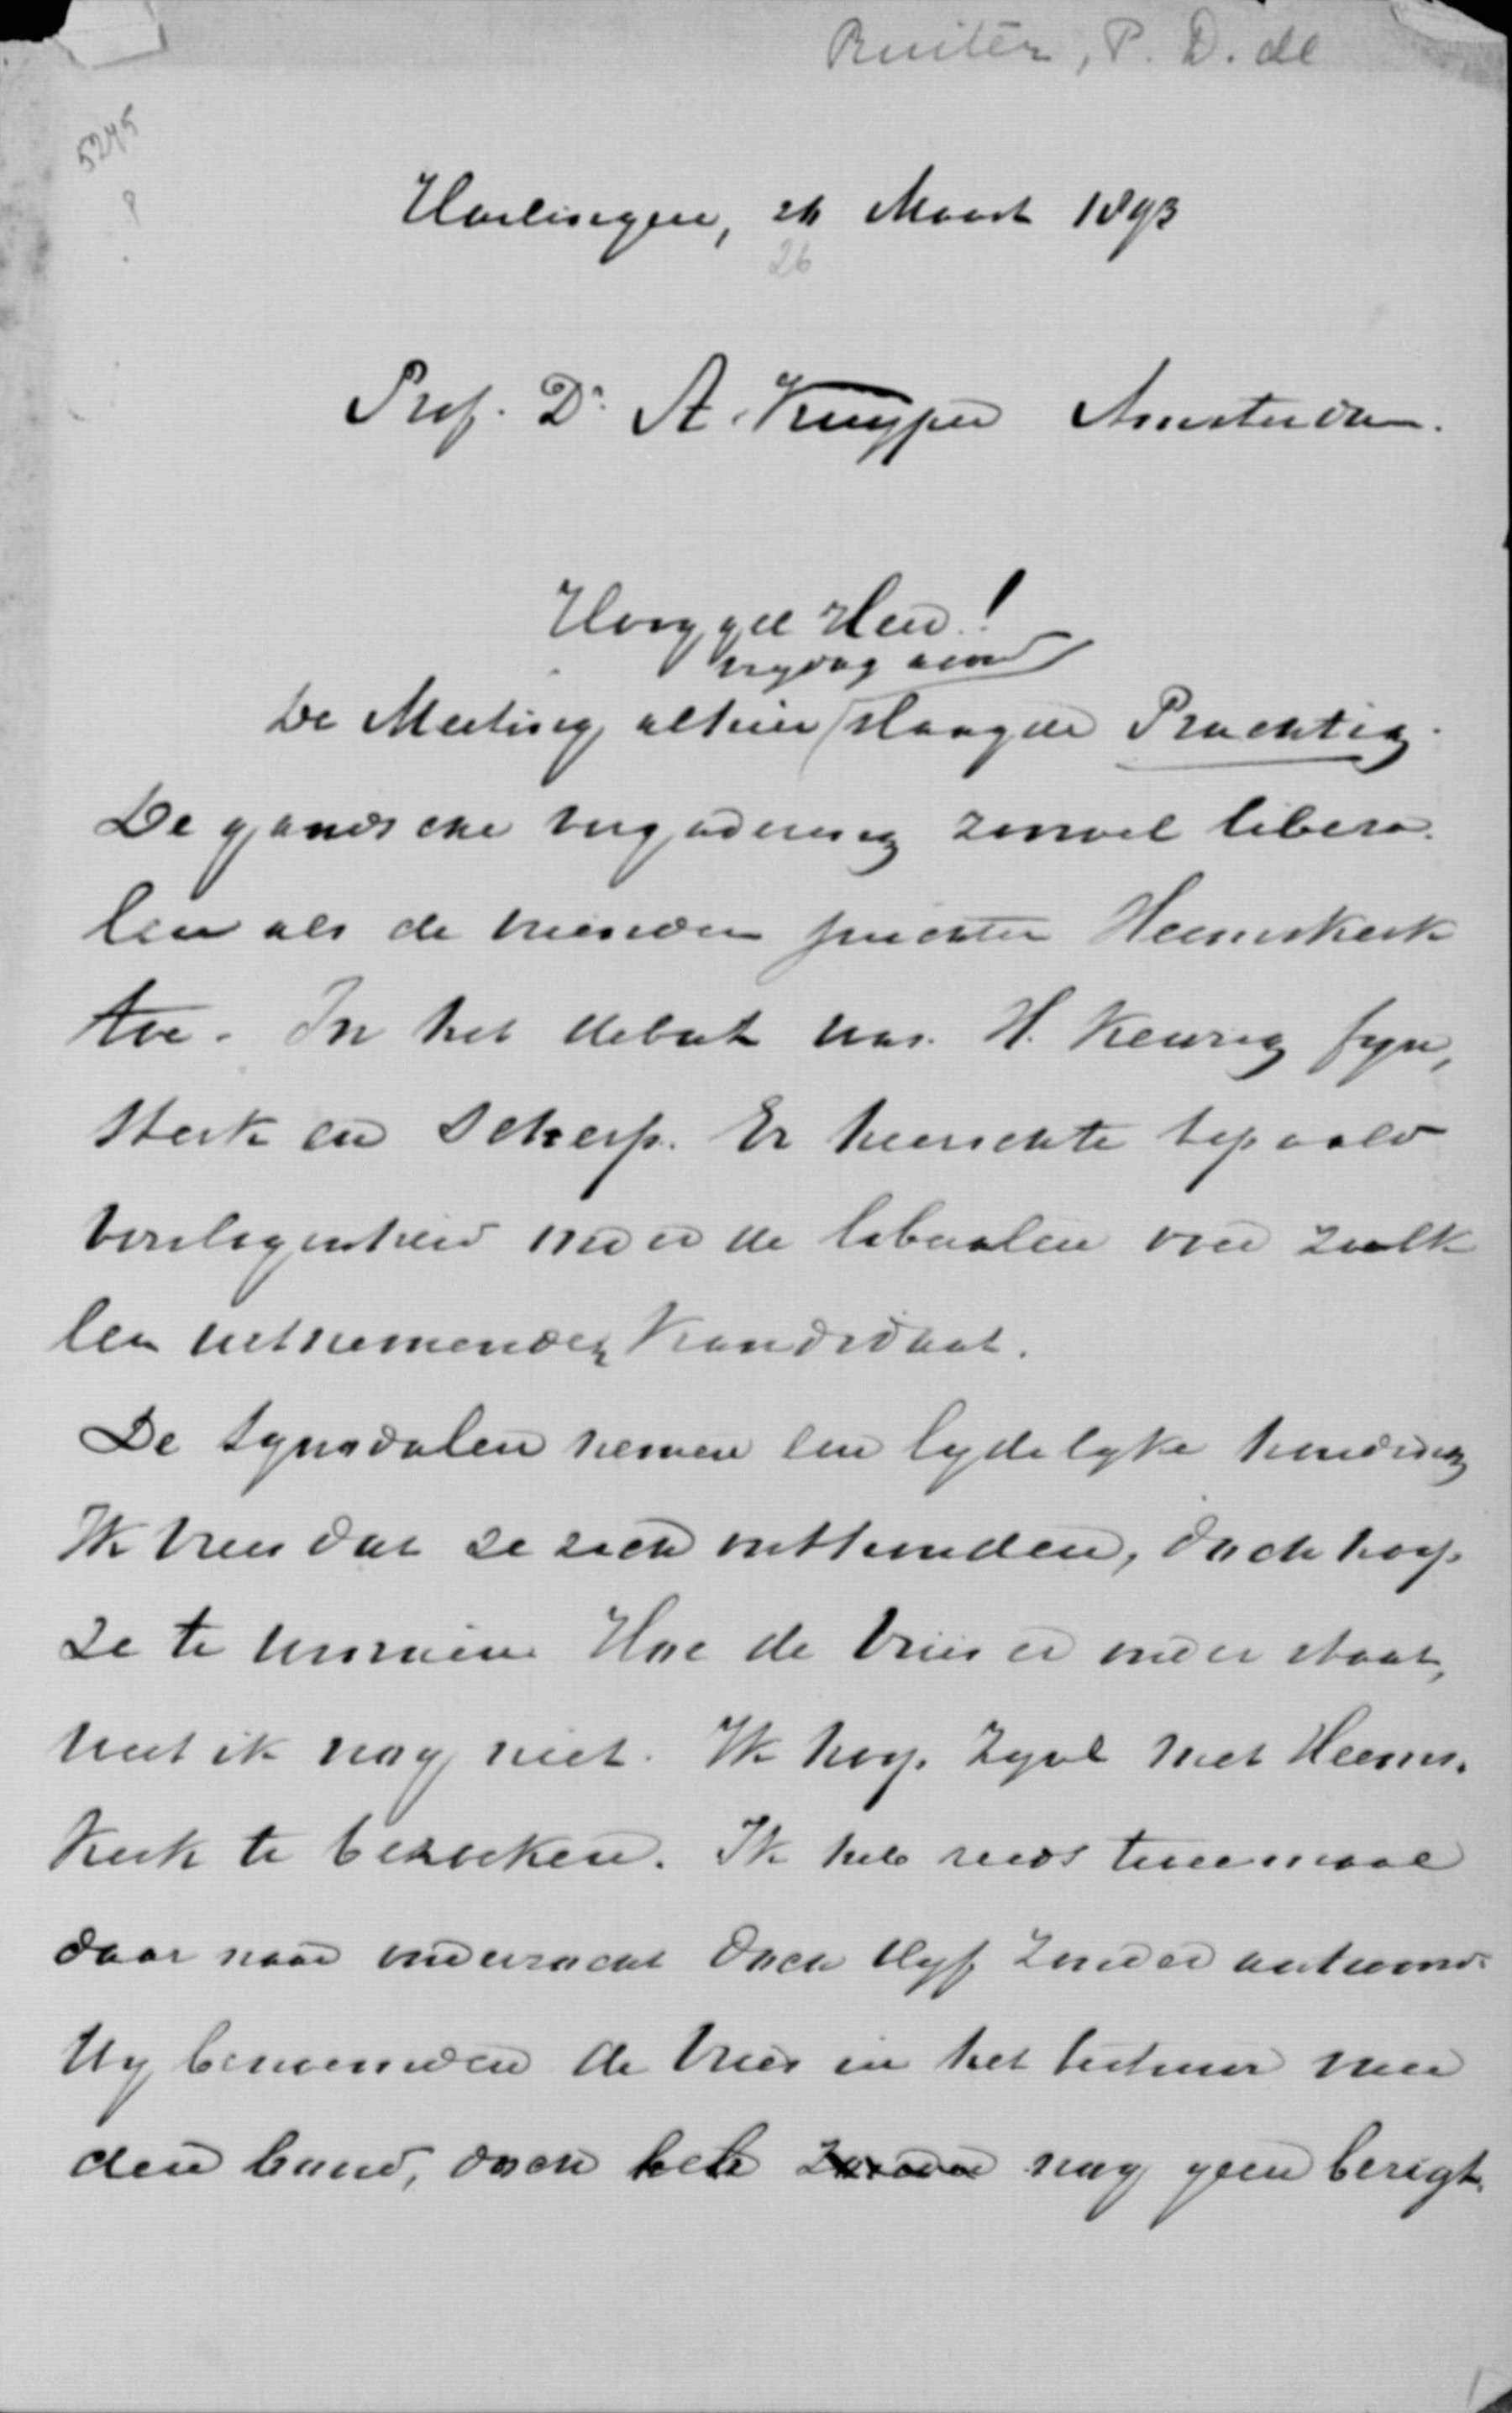 Ruiter, P. D. de
5245
Harlingen, 26 Maart 1893
26
Prof. Dr. A. Kuyper Amsterdam.
Hooggel Heer!
vrydag avond
De Meeting alhier slaagde Prachtig.
De gandsche vergadering zoowel libera-
len als de vrienden juichten Heemskerk
toe. In het debat was H. keurig fyn,
sterk en scherp. Er heerschte bepaald
verlegenheid onder de liberalen over zulk
een uitnemenden Kandidaat.
De Synodalen nemen een lydelyke houding
Ik vrees dat ze zich onthouden, doch hoop
ze te winnen. Hoe de Vries er onder staat,
weet ik nog niet. Ik hoop Zyol met Heems-
kerk te bezoeken. Ik heb reeds tweemaal
daar naar onderzocht doch blyf zonder antwoord.
Wy benoemden de Vries in het bestuur van
den bond, doch heb nog geen berigt.